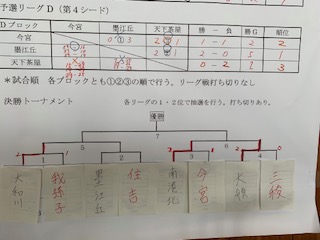 予選リーグD(第4シード)
D ブロック 今宮 墨江丘 天下茶屋 勝 ー 負 勝G 順位
今宮 0 ① 3 2 1 1 - 1 2 2
墨江丘 2 1 5 1
天下茶屋 0 - 2 2 3
*試合順 各ブロックとも①②③の順で行う。リーグ戦打ち切りなし
決勝トーナメント 各リーグの1・2位で抽選を行う。打ち切りあり。
優勝
7
5 6
1 2 3 4
大和川 我孫子 墨江丘 住吉 南港北 今宮 大領 三稜